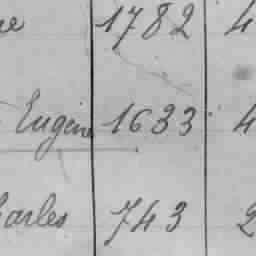 1782 4
Eugène 1633 4
harles 743 2